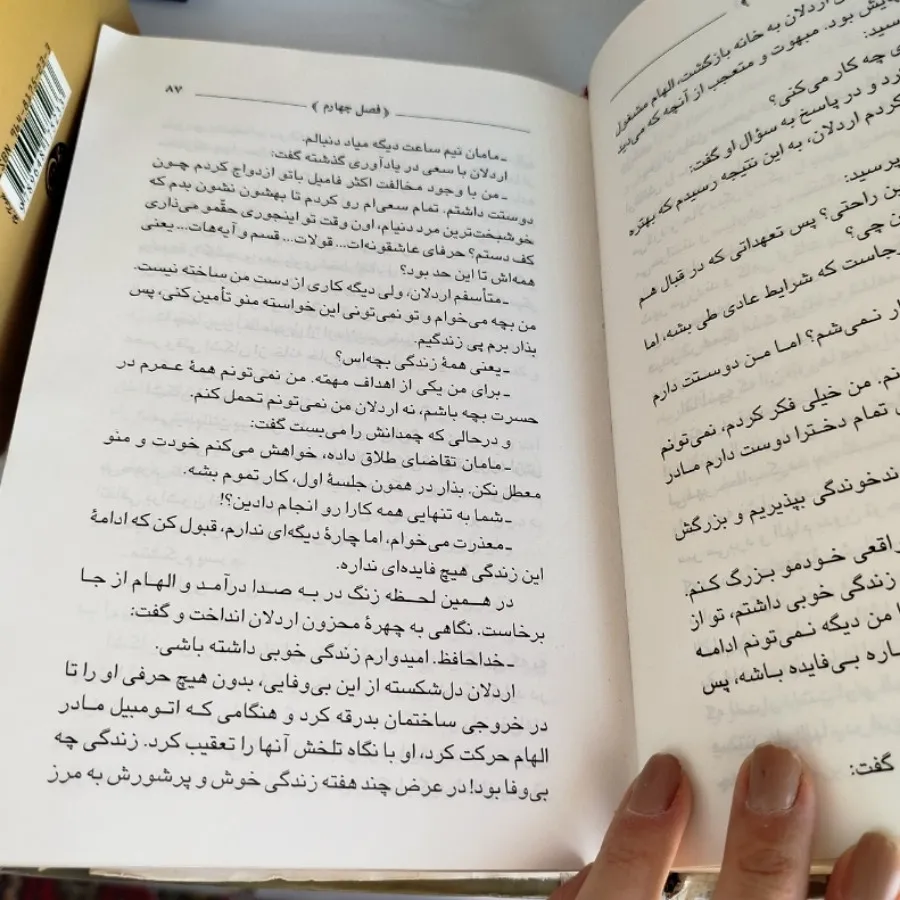 اردلان به خانه بازگشت، الهام مشغول
بود. مبهوت و متعجب از آنچه که می‌دید
چه کار می‌کنی؟
و در پاسخ به سؤال او گفت:
کردم اردلان، به این نتیجه رسیدم که بهتره
راحتی؟ پس تعهداتی که در قبال هم
چی؟
که شرایط عادی طی بشه، اما
نمی‌شم؟ اما من دوستت دارم
من خیلی فکر کردم، نمی‌تونم
تمام دخترا دوست دارم مادر
بپذیریم و بزرگش
خودمو بزرگ کنم.
زندگی خوبی داشتم، تو از
من دیگه نمی‌تونم ادامه
بی‌فایده باشه، پس
گفت:
﴿ فصل چهارم ﴾ ۸۷
ـ مامان نیم ساعت دیگه میاد دنبالم.
اردلان با سعی در یادآوری گذشته گفت:
ـ من با وجود مخالفت اکثر فامیل باتو ازدواج کردم چون
دوستت داشتم. تمام سعی‌ام رو کردم تا بهشون نشون بدم که
خوشبخت‌ترین مرد دنیام، اون وقت تو اینجوری حقّمو می‌ذاری
کف دستم؟ حرفای عاشقونه‌ات... قولات... قسم و آیه‌هات... یعنی
همه‌اش تا این حد بود؟
ـ متأسفم اردلان، ولی دیگه کاری از دست من ساخته نیست.
من بچه می‌خوام و تو نمی‌تونی این خواسته منو تأمین کنی، پس
بذار برم پی زندگیم.
ـ یعنی همهٔ زندگی بچه‌اس؟
ـ برای من یکی از اهداف مهمّه. من نمی‌تونم همهٔ عمرم در
حسرت بچه باشم، نه اردلان من نمی‌تونم تحمل کنم.
و درحالی که چمدانش را می‌بست گفت:
ـ مامان تقاضای طلاق داده، خواهش می‌کنم خودت و منو
معطل نکن. بذار در همون جلسهٔ اول، کار تموم بشه.
ـ شما به تنهایی همه کارا رو انجام دادین؟!
ـ معذرت می‌خوام، اما چارهٔ دیگه‌ای ندارم، قبول کن که ادامهٔ
این زندگی هیچ فایده‌ای نداره.
در همین لحظه زنگ در به صدا درآمد و الهام از جا
برخاست. نگاهی به چهرهٔ محزون اردلان انداخت و گفت:
ـ خداحافظ. امیدوارم زندگی خوبی داشته باشی.
اردلان دل‌شکسته از این بی‌وفایی، بدون هیچ حرفی او را تا
در خروجی ساختمان بدرقه کرد و هنگامی که اتومبیل مادر
الهام حرکت کرد، او با نگاه تلخش آنها را تعقیب کرد. زندگی چه
بی‌وفا بود! در عرض چند هفته زندگی خوش و پرشورش به مرز